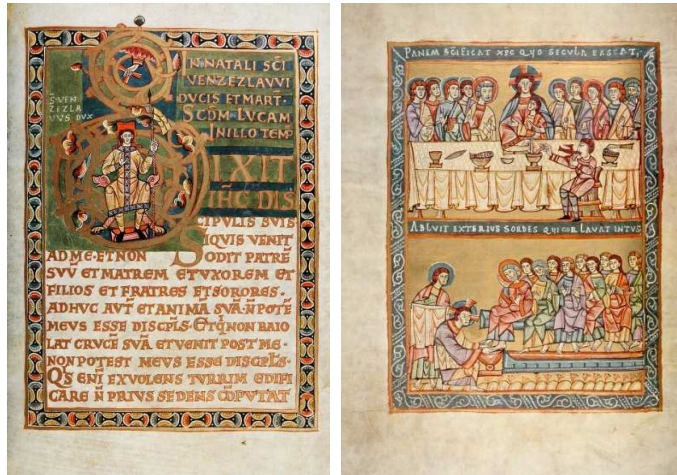 IN NATALI SCI
VENZEZLAVVI
DUCIS ET MART·
SCDM LUCAM
IN ILLO TEMP
S· VEN
ZEZLA
VVS DUX
DIXIT
IHC DIS
CIPULIS SUIS
SIQUIS VENIT
AD ME· ET NON ODIT PATRE
SVV ET MATREM ET UXOREM ET
FILIOS ET FRATRES ET SORORES·
ADHUC AVT ET ANIMA SVA· N POTE
MEVS ESSE DISCPLS· ET Q NON BAIO
LAT CRUCE SVA ET VENIT POST ME·
NON POTEST MEVS ESSE DISCPLS·
QS ENI EX VOLENS TVRRIM EDIFI
CARE N PRIUS SEDENS COPUTAT
PANEM SCIFICAT XPC QUO SECULA PASCAT;
ABLUIT EXTERIUS SORDES QUI COR LAVAT INTUS